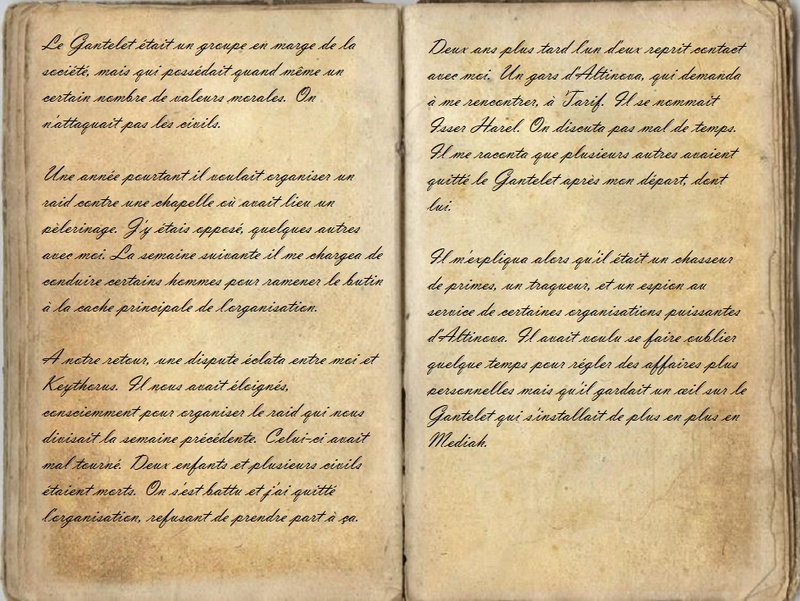 Le Gantelet était un groupe en marge de la
société, mais qui possédait quand même un
certain nombre de valeurs morales. On
n'attaquait pas les civils.
Une année pourtant il voulait organiser un
raid contre une chapelle où avait lieu un
pèlerinage. J'y étais opposé, quelques autres
avec moi. La semaine suivante il me chargea de
conduire certains hommes pour ramener le butin
à la cache principale de l'organisation.
A notre retour, une dispute éclata entre moi et
Keythorus. Il nous avait éloignés,
consciemment pour organiser le raid qui nous
divisait la semaine précédente. Celui-ci avait
mal tourné. Deux enfants et plusieurs civils
étaient morts. On s'est battu et j'ai quitté
l'organisation, refusant de prendre part à ça.
Deux ans plus tard l'un d'eux reprit contact
avec moi. Un gars d'Altinova, qui demanda
à me rencontrer, à Tarif. Il se nommait
Isser Harel. On discuta pas mal de temps.
Il me raconta que plusieurs autres avaient
quitté le Gantelet après mon départ, dont
lui.
Il m'expliqua alors qu'il était un chasseur
de primes, un traqueur, et un espion au
service de certaines organisations puissantes
d'Altinova. Il avait voulu se faire oublier
quelque temps pour régler des affaires plus
personnelles mais qu'il gardait un œil sur le
Gantelet qui s'installait de plus en plus en
Mediah.